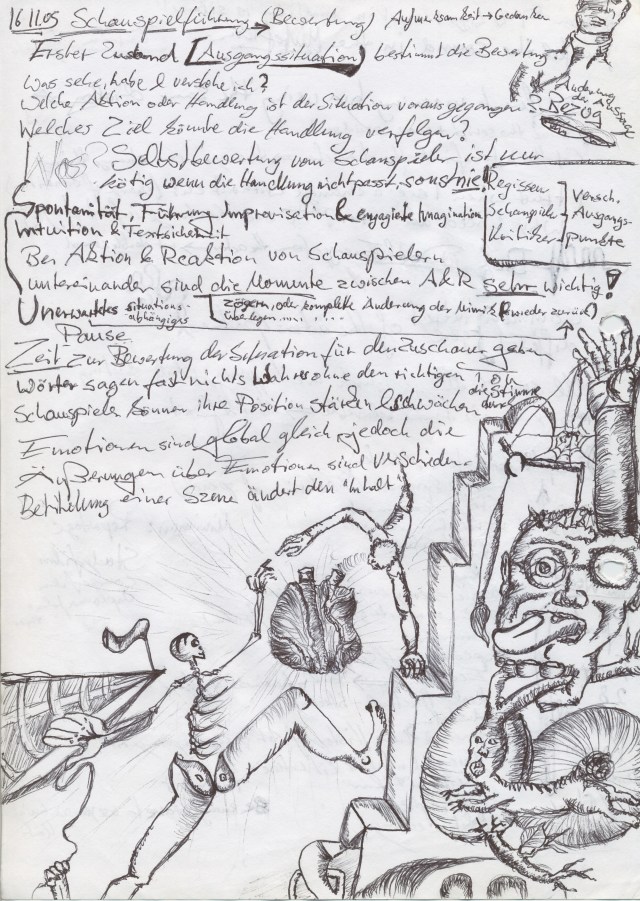 16.11.05 Schauspielführung → (Bewertung) Aufmerksamkeit → Gedanken
Erster Zustand [Ausgangssituation) bestimmt die Bewertung
Was sehe, habe & verstehe ich?
Welche Aktion oder Handlung ist der Situation vorausgegangen?
Änderung der Aussage
BEZUG
Welches Ziel könnte die Handlung verfolgen?
Was? Selbstbewertung vom Schauspieler, ist nur
nötig wenn die Handlung nicht passt, sonst nie!
Regisseur
Schauspieler
Kritiker
Versch.
Ausgangs-
punkte
Spontanität, Führung Improvisation & engagierte Imagination
Intuition & Textsicherheit
Bei Aktion & Reaktion von Schauspielern
untereinander sind die Momente zwischen A&R sehr wichtig!
Unerwartetes situations-
abhängiges
[zögern, oder komplette Änderung der Mimik (& wieder zurück)
überlegen.........
Pause
Zeit zur Bewertung der Situation für den Zuschauer geben
Wörter sagen fast nichts Wahres ohne den richtigen Ton
die Stimme
Schauspieler können ihre Position stärken & schwächen durch
Emotionen sind global gleich, jedoch die
Äußerungen über Emotionen sind verschieden
einer Szene ändert den "Inhalt"